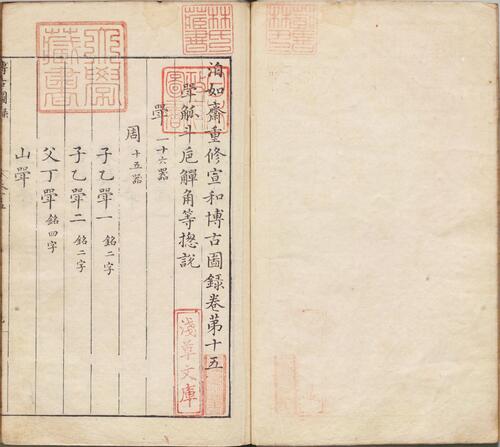 泊如齋重修宣和博古圖録卷第十五
斝觚斗巵觶角等揔說
斝一十六器
周十五器
子乙斝一銘二字
子乙斝二銘二字
父丁斝銘四字
山斝
博古圖録
淺草文庫
林氏藏書